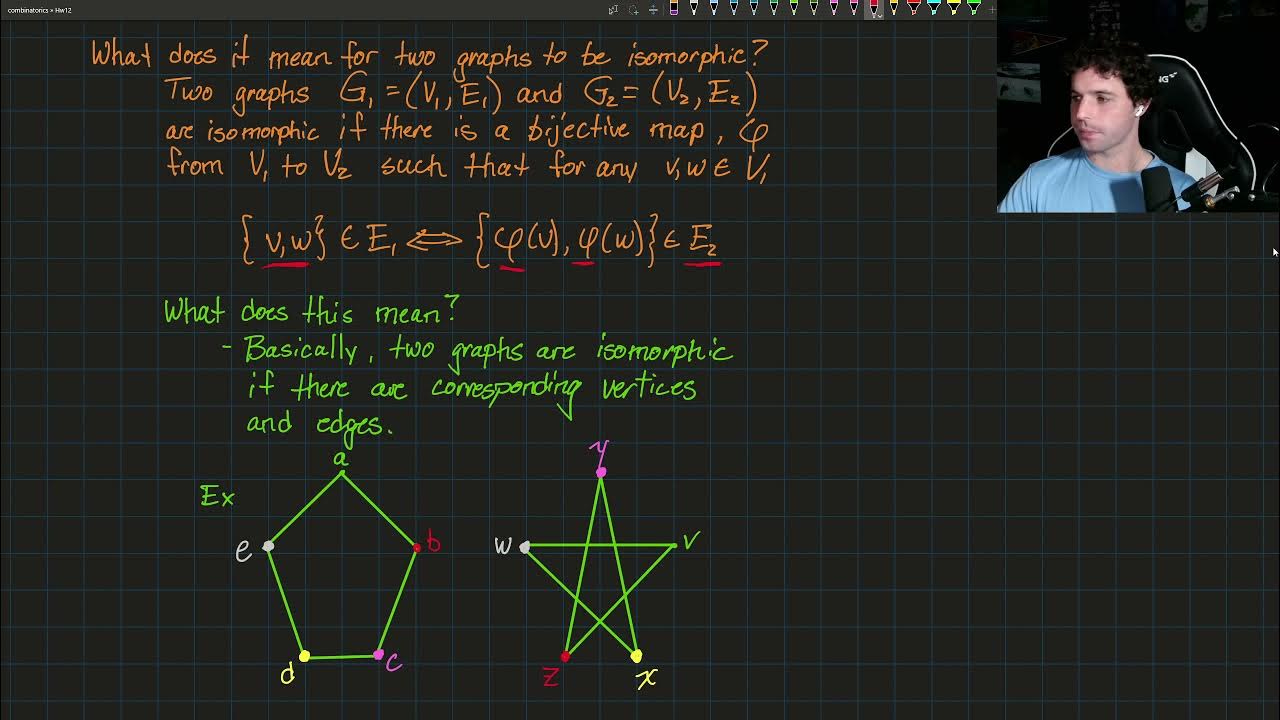 combinatorics » Hw12
What does it mean for two graphs to be isomorphic?
Two graphs G₁ = (V₁, E₁) and G₂ = (V₂, E₂)
are isomorphic if there is a bijective map, φ
from V₁ to V₂ such that for any v,w ∈ V₁
{v,w} ∈ E₁ ⟺ {φ(v), φ(w)} ∈ E₂
What does this mean?
- Basically, two graphs are isomorphic
if there are corresponding vertices
and edges.
Ex
a
e
b
d
c
y
w
v
z
x